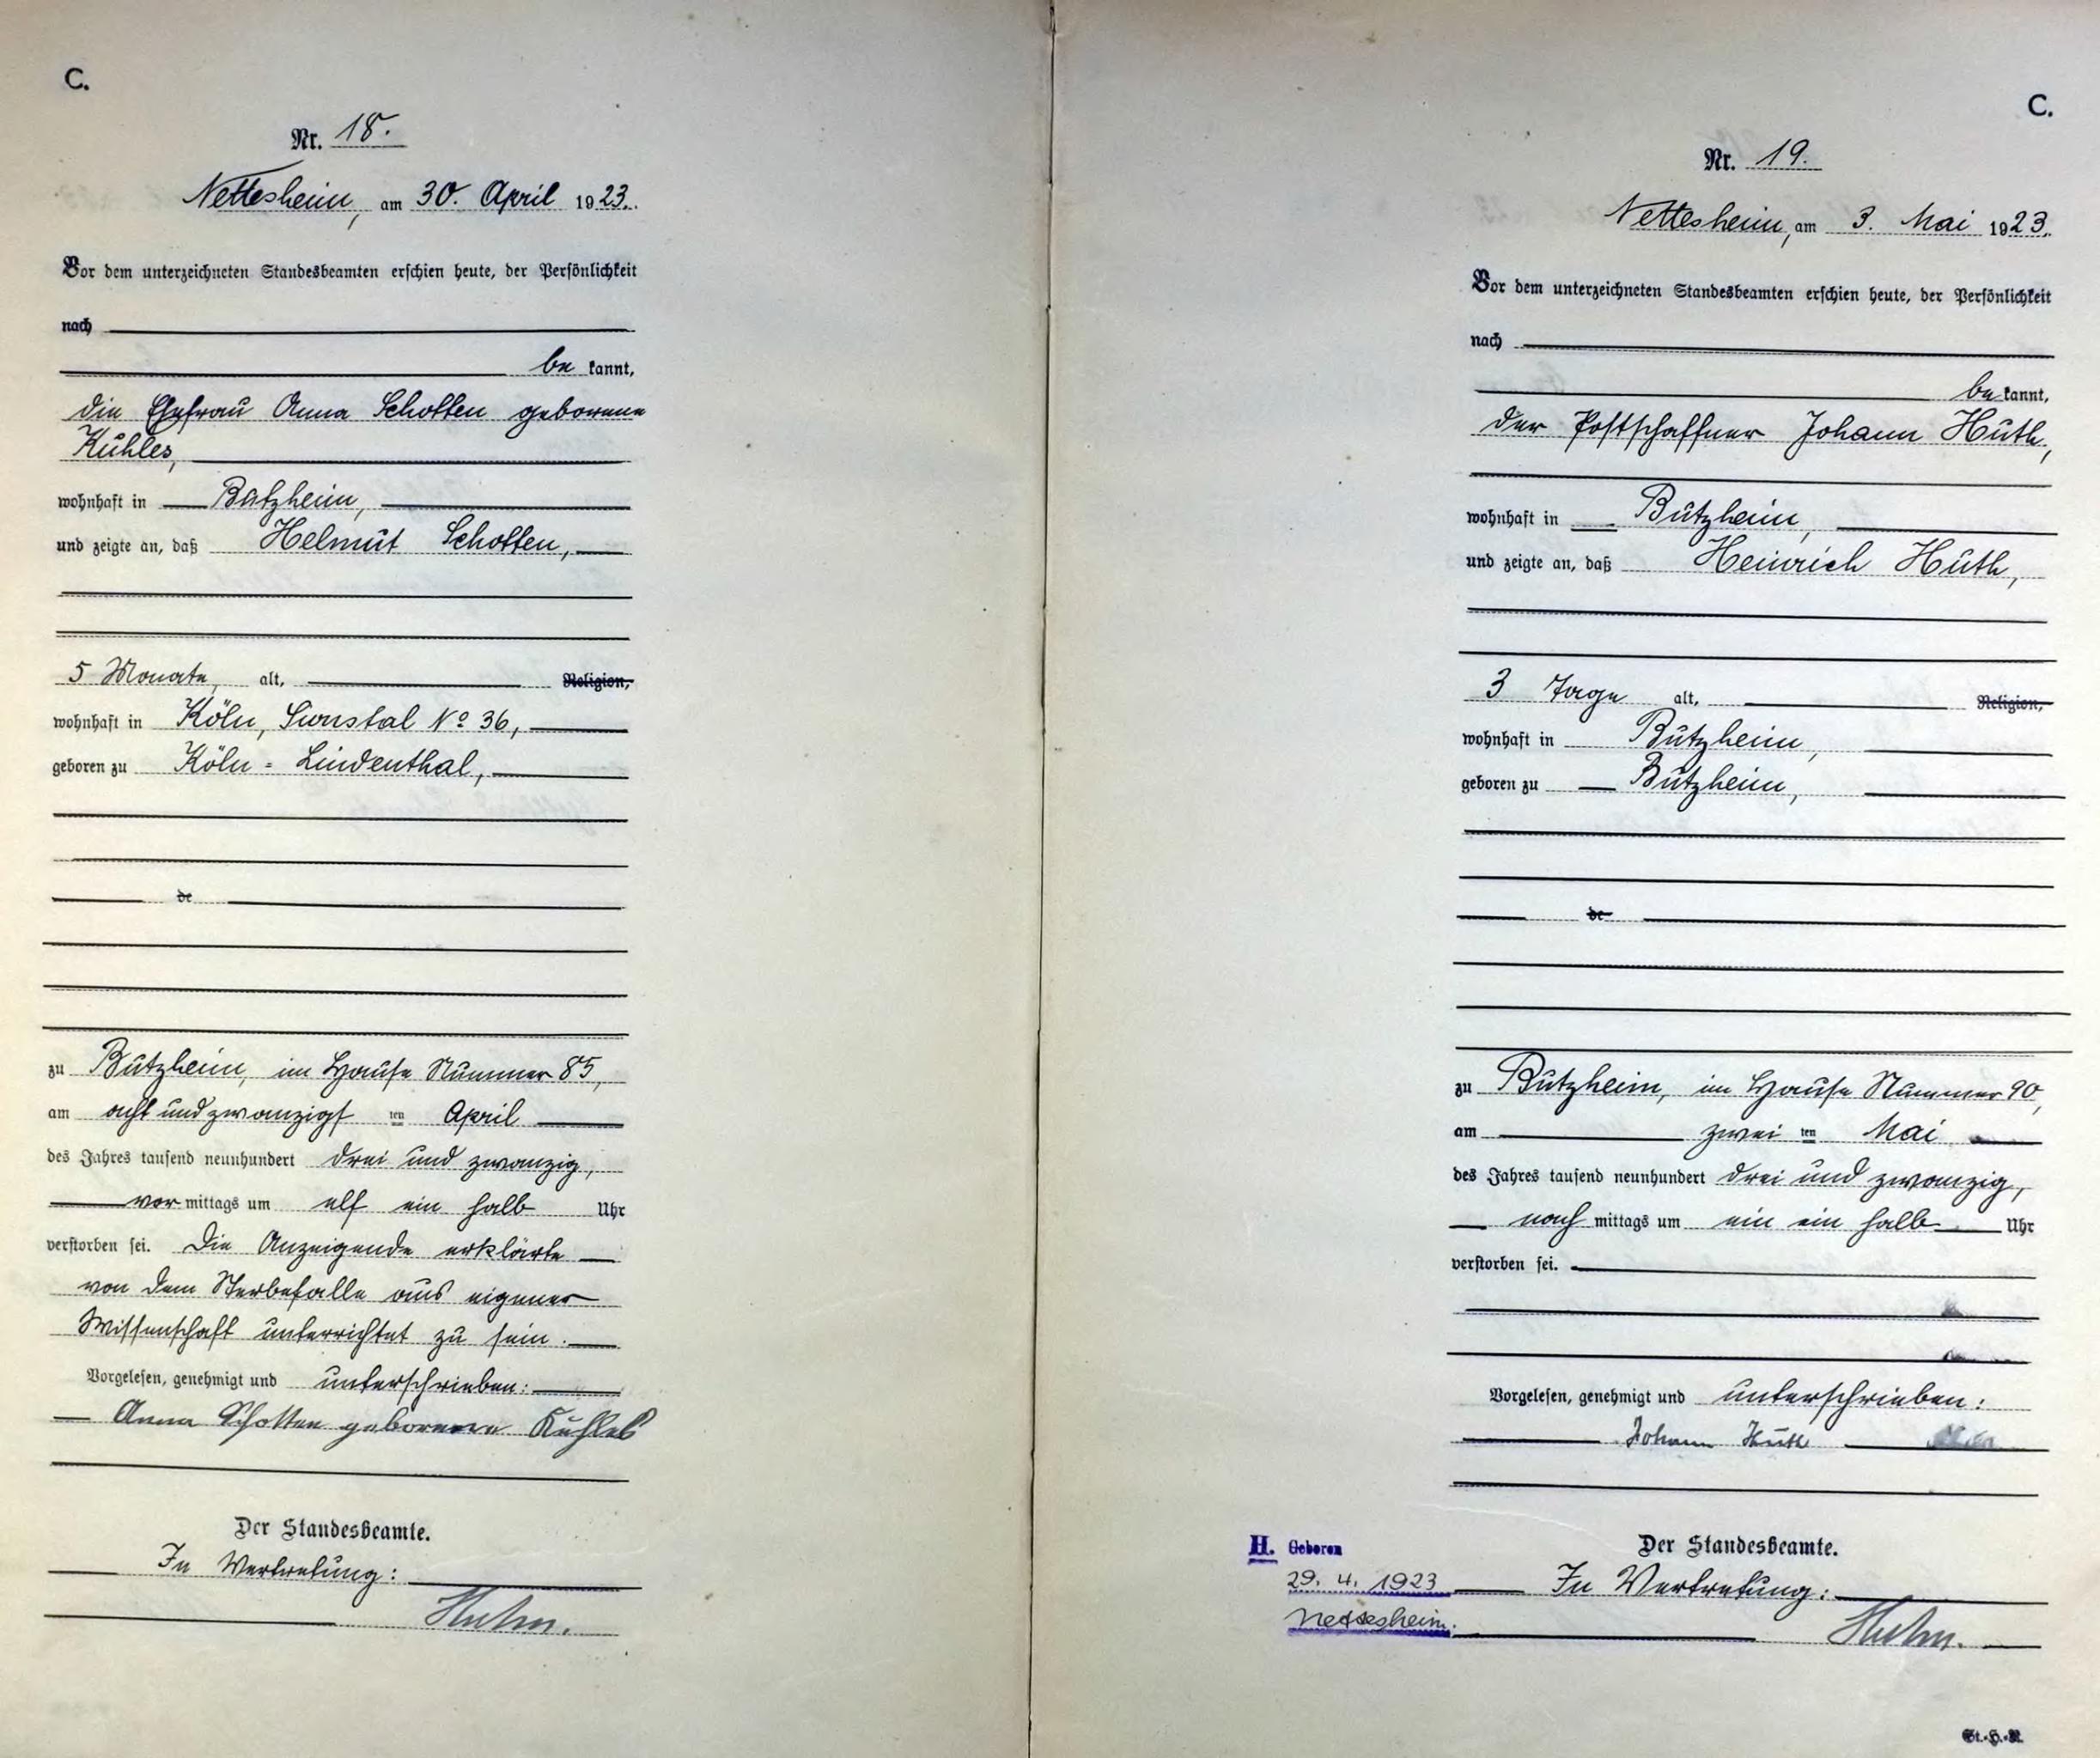 C.
Nr. 18.
Nettesheim, am 30. April 1923.
Vor dem unterzeichneten Standesbeamten erschien heute, der Persönlichkeit
nach
be kannt,
die Ehefrau Anna Schotten geborene
Kühles,
wohnhaft in Butzheim,
und zeigte an, daß Helmut Schotten,
5 Monate, alt, Religion,
wohnhaft in Köln, Nº 36,
geboren zu Köln=Lindenthal,
de
zu Butzheim, im Hause Nummer 85,
am acht und zwanzigst ten April
des Jahres tausend neunhundert drei und zwanzig,
vor mittags um elf ein halb Uhr
verstorben sei. Die Anzeigende erklärte
von dem Sterbefalle aus eigener
Wissenschaft unterrichtet zu sein.
Vorgelesen, genehmigt und unterschrieben:
Anna Schotten geborene Kühles
Der Standesbeamte.
In Vertretung:
C.
Nr. 19.
Nettesheim, am 3. Mai 1923.
Vor dem unterzeichneten Standesbeamten erschien heute, der Persönlichkeit
nach
be kannt,
der Postschaffner Johann Huth,
wohnhaft in Butzheim,
und zeigte an, daß Heinrich Huth,
3 Tage alt, Religion,
wohnhaft in Butzheim,
geboren zu Butzheim,
de
zu Butzheim, im Hause Nummer 90,
am zwei ten Mai
des Jahres tausend neunhundert drei und zwanzig,
nach mittags um ein ein halb Uhr
verstorben sei.
Vorgelesen, genehmigt und unterschrieben:
Johann Huth
Der Standesbeamte.
In Vertretung:
H. Geboren
29. 4. 1923
Nettesheim.
St.-H.-R.